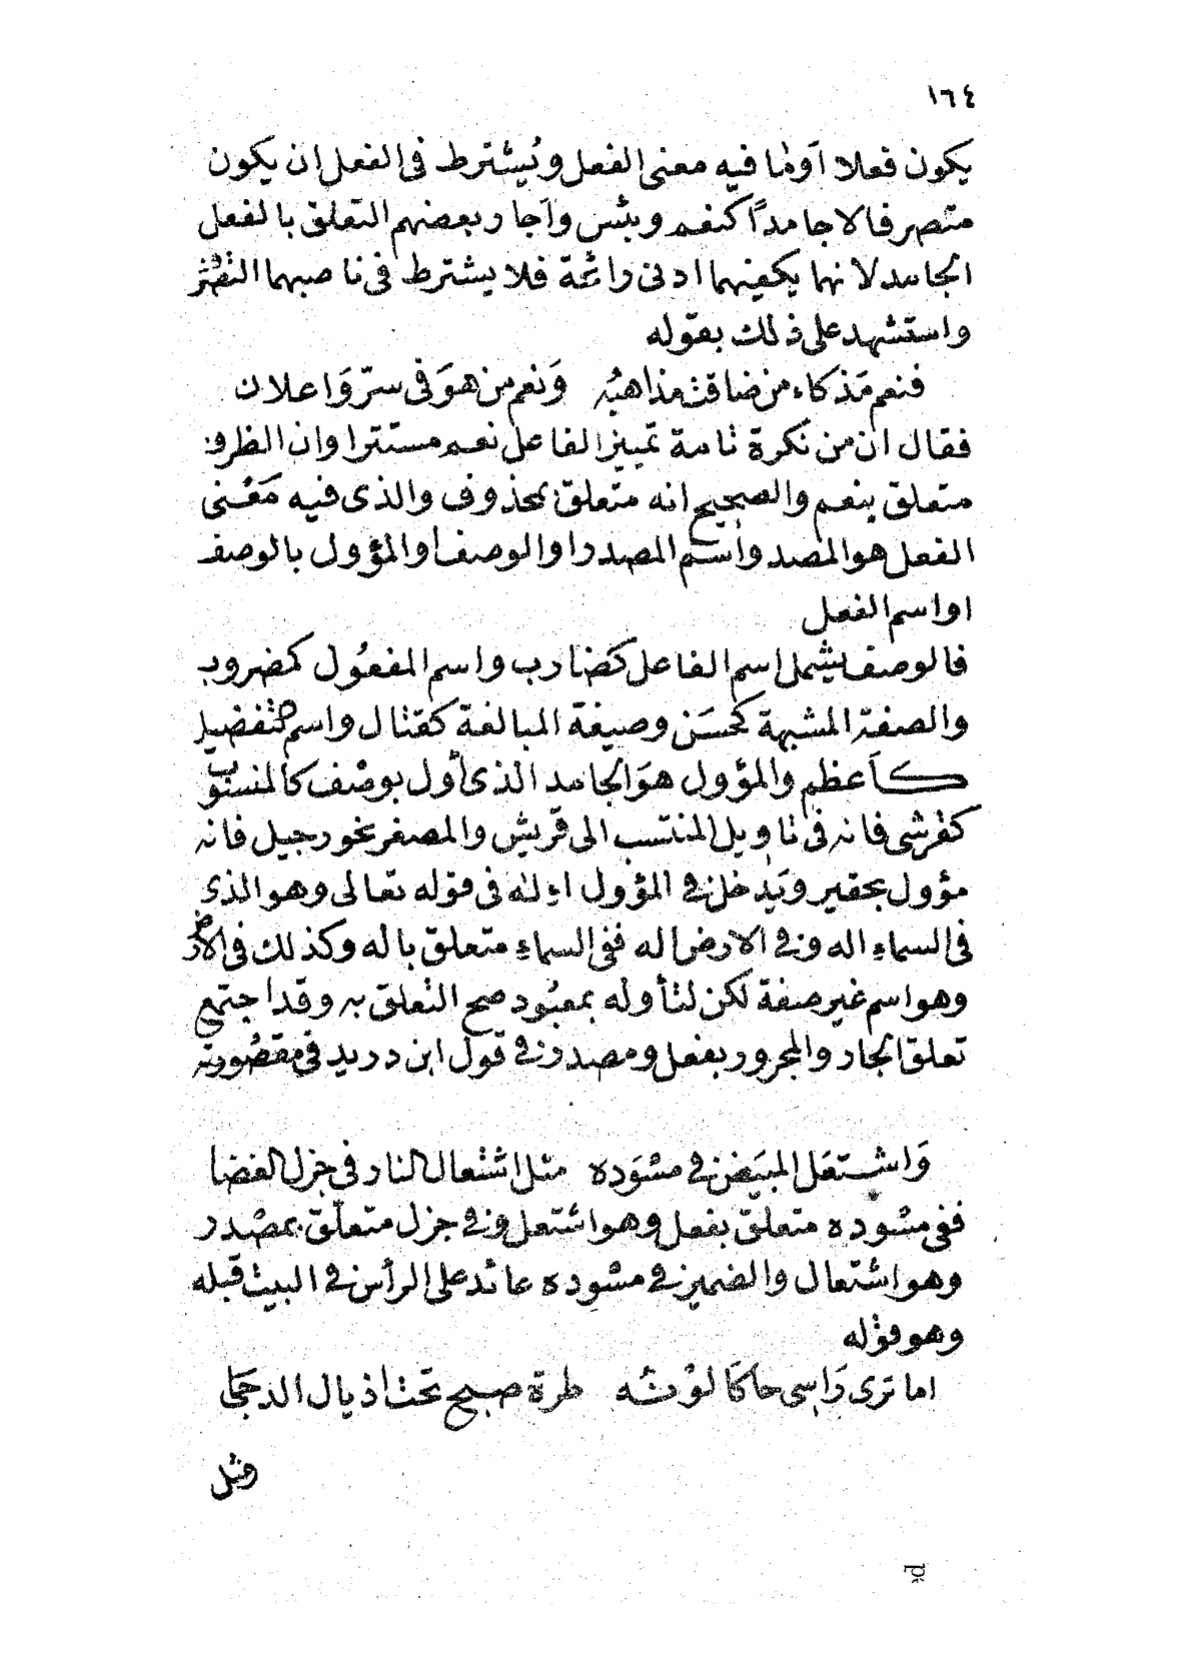 ١٦٤
يكون فعلا اَوما فيه معنى الفعل ويُشترط فى الفعل ان يكون
متصرفا لا جامداً كنعم وبئس واَجاز بعضهم التعلق بالفعل
الجامد لانهما يكفيهما ادنى رائحة فلا يشترط فى ناصبهما التصرف
واستشهد على ذلك بقوله
فنعم مَذكاء من ضاقت مذاهبُه وَنعم من هوَ فى سرّ وَاعلان
فقال ان من نكرة تامة تمييز الفاعل نعم مستترا وان الظرف
متعلق بنعم والصحيح انه متعلق بمحذوف والذى فيه مَعْنى
الفعل هو المصدر واسم المصدر او الوصف او المؤول بالوصف
او اسم الفعل
فالوصف يشمل اسم الفاعل كَضارب واسم المفعُول كمضروب
والصفة المشبهة كحسَن وصيغة المبالغة كقتال واسم التفضيل
كاَعظم والمؤول هوَ الجامد الذى أول بوصْف كالمنسوب
كقرشى فانه فى تاويل المنتسب الى قريش والمصغر نحو رجيل فانه
مؤول بحقير ويَدخل فى المؤول اله فى قوله تعالى وهو الذى
فى السماءِ اله وفى الارض اله ففى السماءِ متعلق باله وكذلك فى الارض
وهو اسم غير صفة لكن لتأوله بمعبُود صح التعلق به وقد اجتمع
تعلق الجار والمجرور بفعل ومصدر فى قول ابن دريد فى مقصُورته
وَاشتعَل المبيَض فى مسْوَده مثل اشتعال النار فى جزل الغضا
ففى مسْوده متعلق بفعل وهو اشتعل وفى جزل متعلّق بمصْدر
وهو اشتعال والضمير فى مسْوده عائد على الرأس فى البيت قبله
وهو قوْله
اما ترى رَاسى حاكَا لوْنه طرة صبح تحت اذيال الدجَى